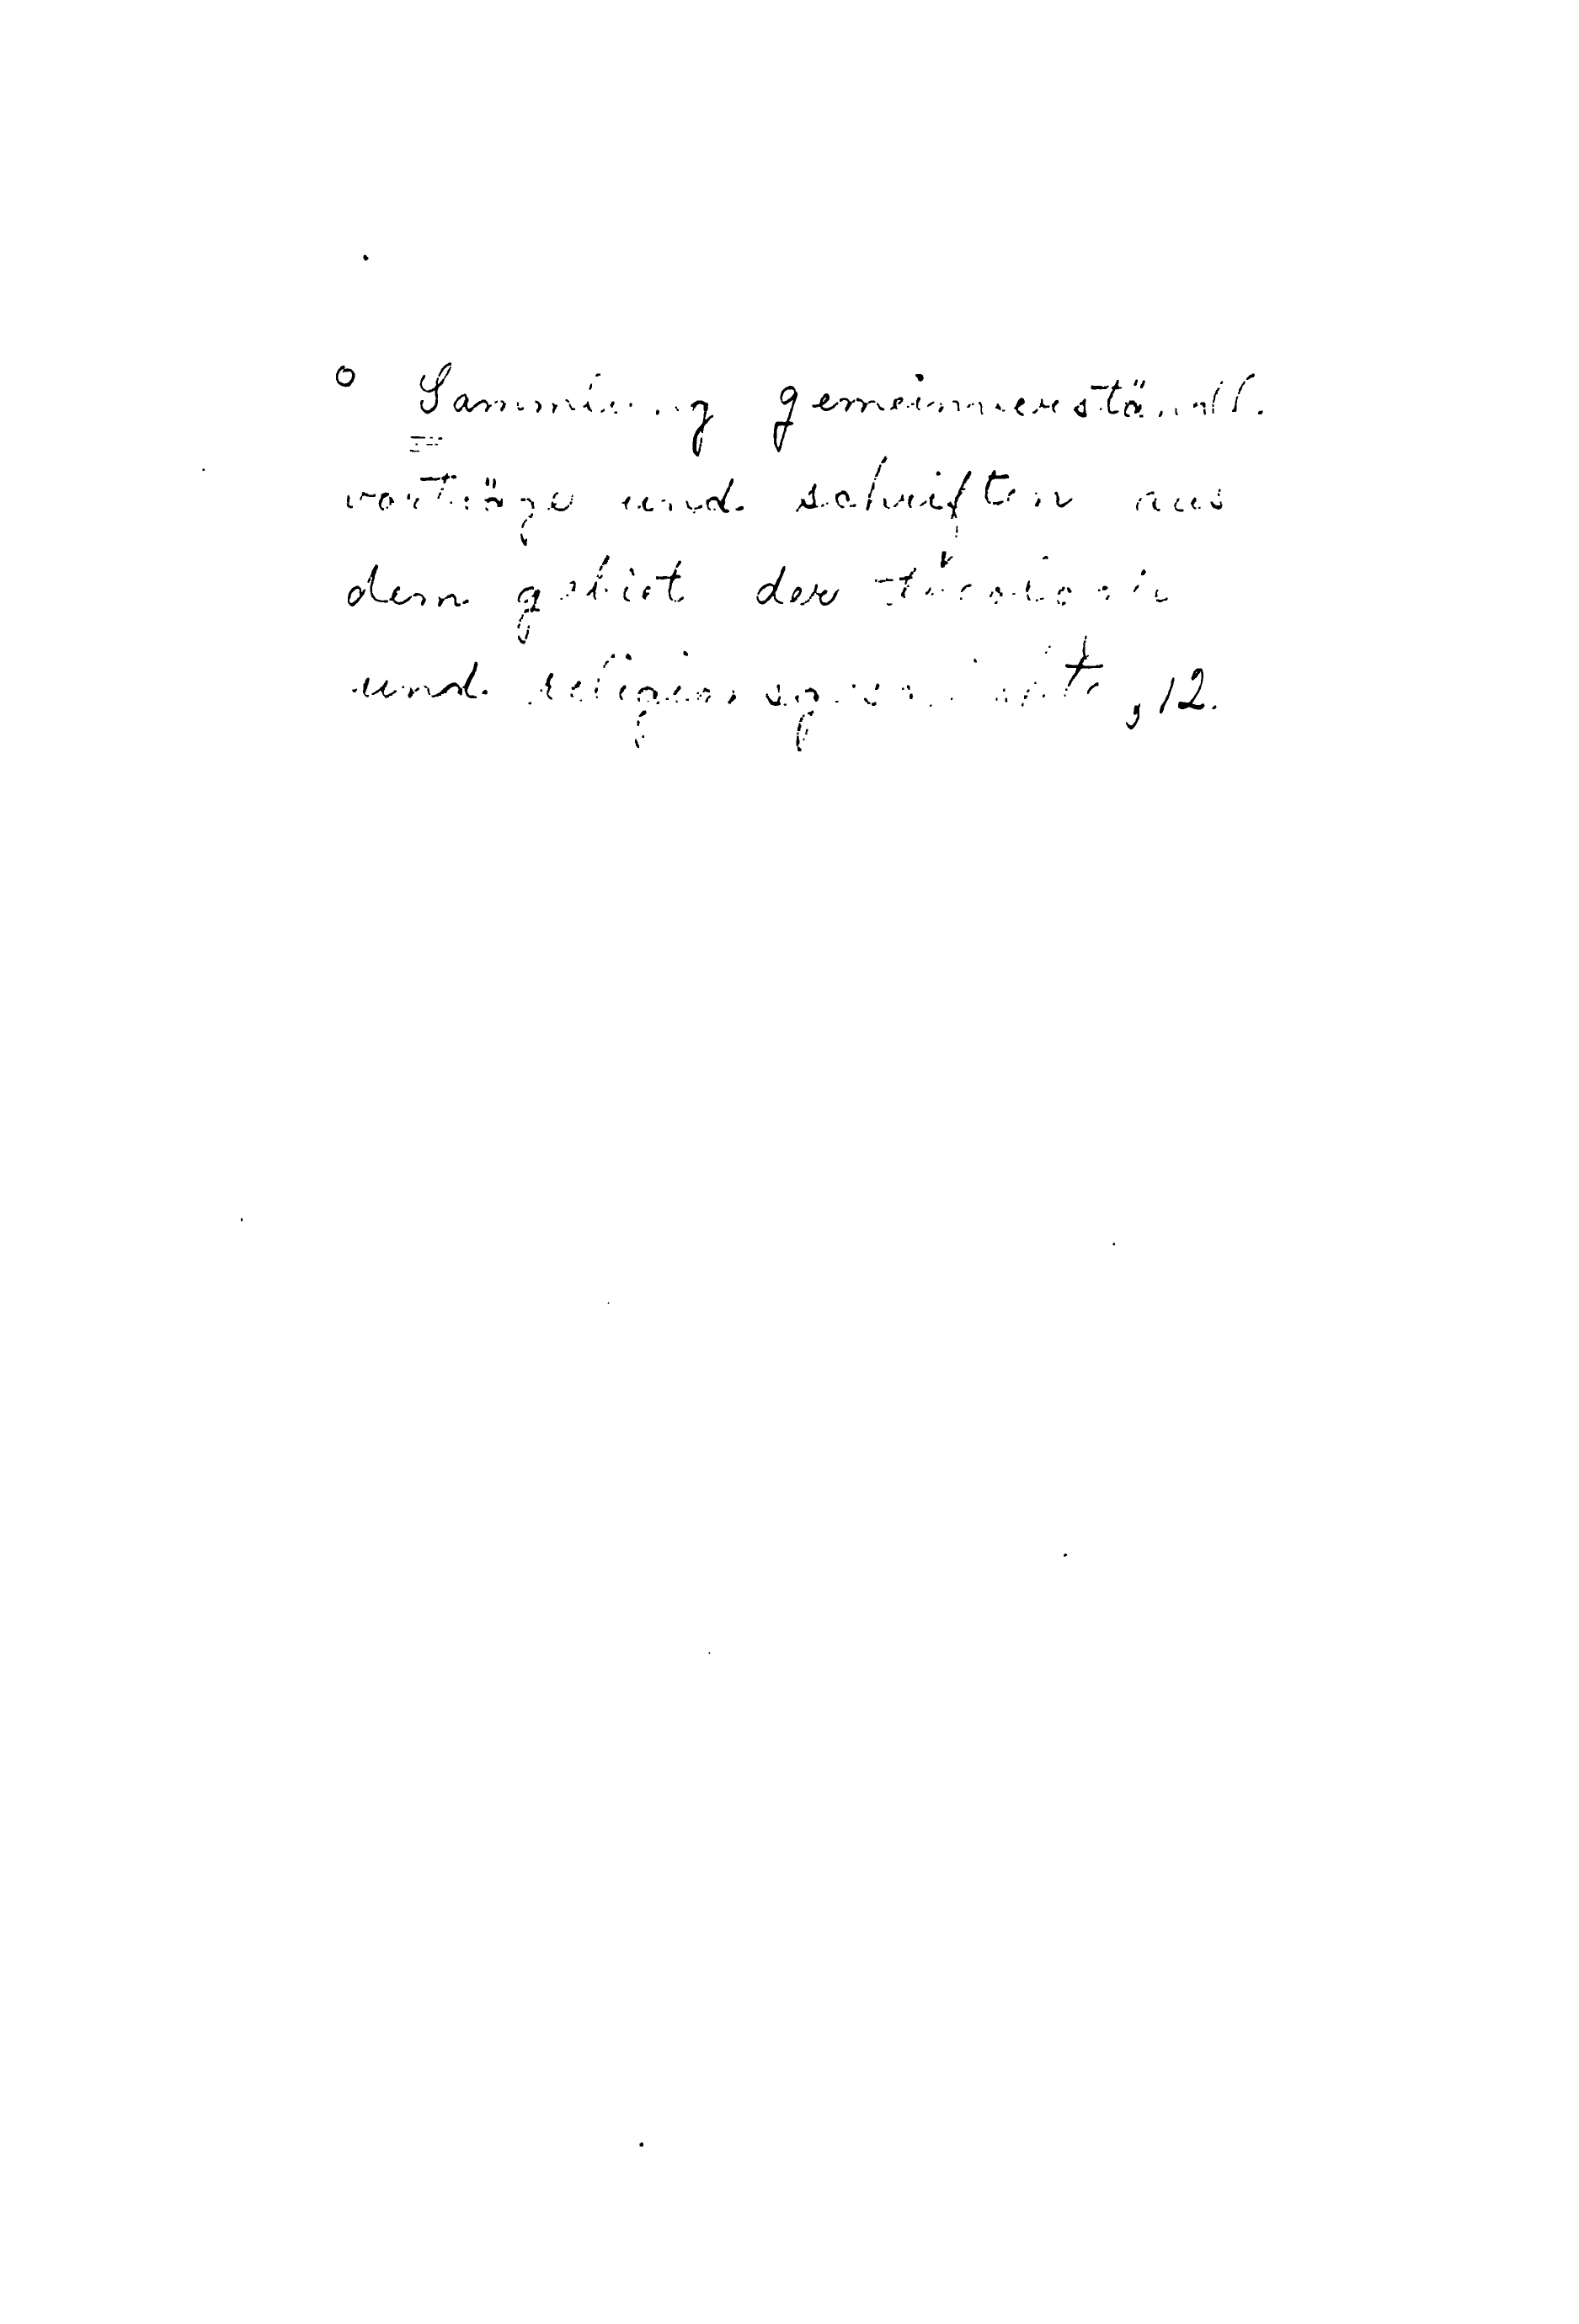 ° Sammlung gemeinverständl.
vorträge und schriften aus
dem gebiet der theologie
und religionsgeschichte, 12.